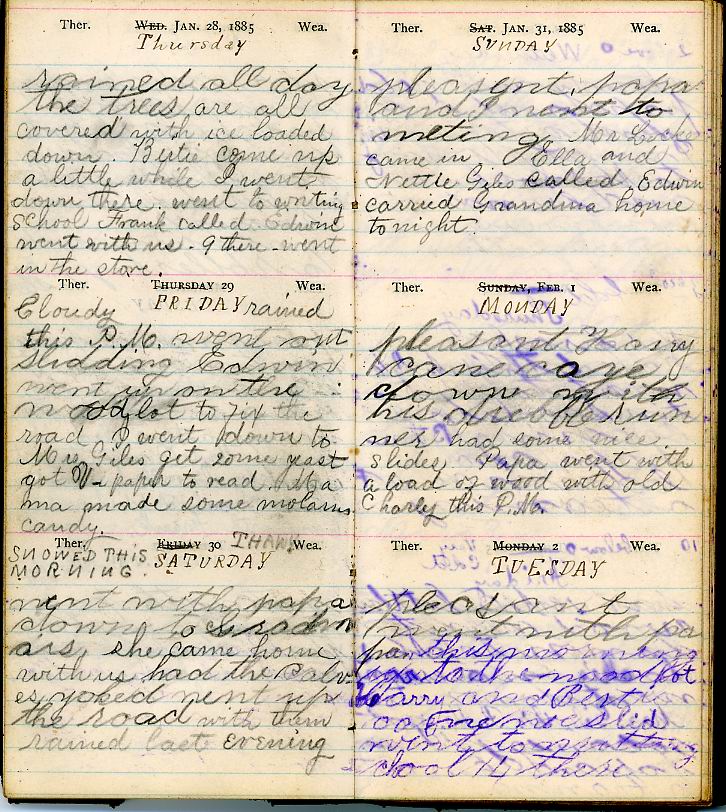 Ther. WED. JAN. 28, 1885 Wea.
Thursday
rained all day
the trees are all
covered with ice loaded
down. Bertie come up
a little while I went
down there. went to writing
school Frank called Edwin
went with us. 9 there - went
in the stove.
Ther. THURSDAY 29 Wea.
FRIDAY
Cloudy rained
this P.M. went out
slidding Edwin
went up on the
wood lot to fix the
road I went down to
Mrs Giles get some yeast
got V- paper to read. Ma
ma made some molasses
candy.
Ther. FRIDAY 30 THAW Wea.
SNOWED THIS SATURDAY
MORNING.
went with papa
down to Gradm
as, she came home
with us had the calv
es yoked went up
the road with them
rained last evening
Ther. SAT. JAN. 31, 1885 Wea.
SUNDAY
pleasent, papa
and I went to
meting Mr Locke
came in. Ella and
Nettie Giles called, Edwin
carried Grandma home
to night.
Ther. SUNDAY, FEB. 1 Wea.
MONDAY
pleasant Harry
came
down with
his run
ner had some nice
slides Papa went with
a load of wood with old
Charley this P.M.
Ther. MONDAY 2 Wea.
TUESDAY
pleasant
went with pa
pa this morning
up to the wood lot
Harry and Bert
sled
went to
chool 14 there